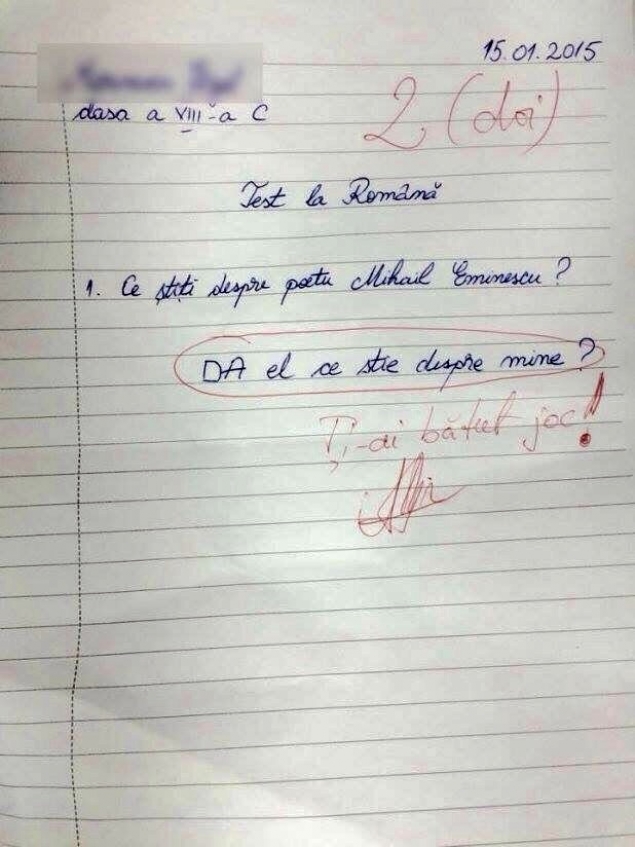 15.01.2015
clasa a VIII-a C
2 (doi)
Test la Română
1. Ce știți despre poetu Mihail Eminescu?
DA el ce stie despre mine?
Ți-ai bătut joc!